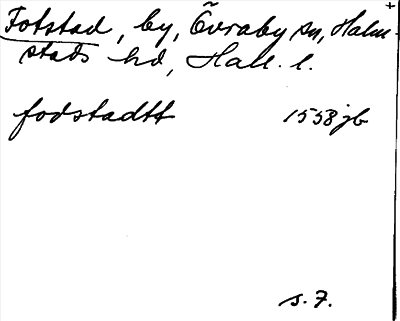 Fotstad, by, Övraby sn, Halm-
stads hd, Hall. l.
fodstadtt 1558 jb
s. 7.